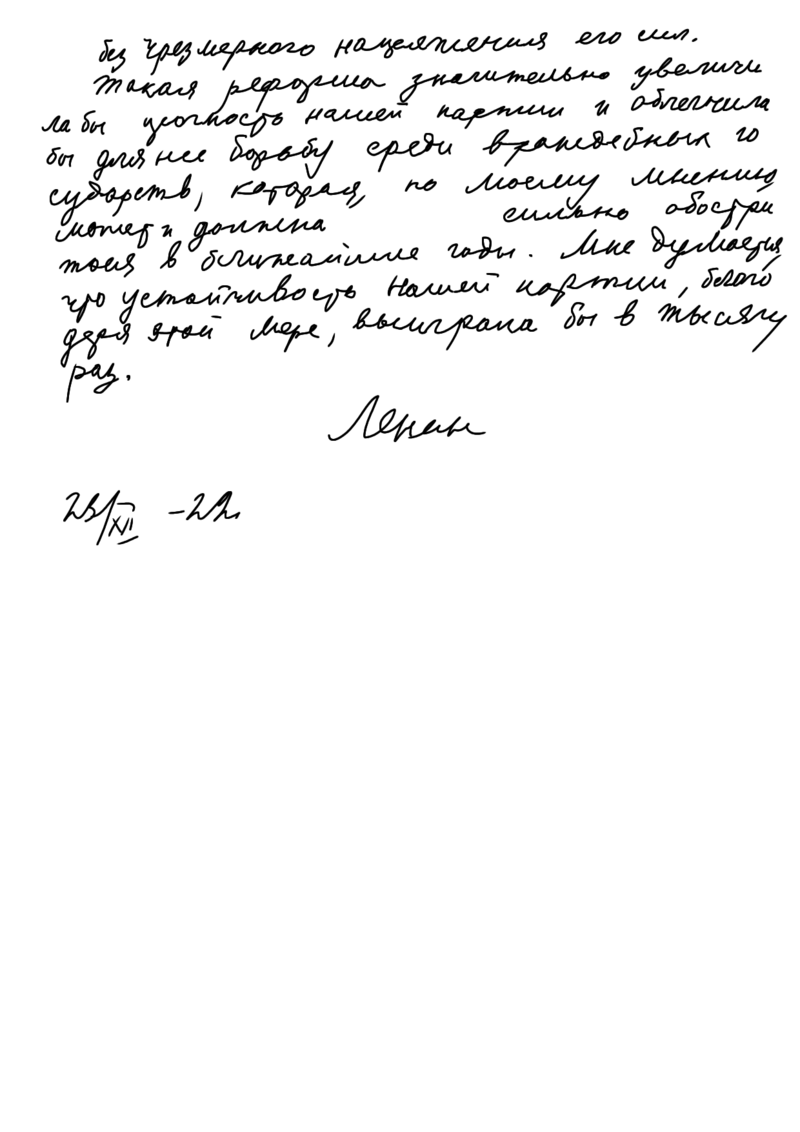 без чрезмерного напряжения его сил.
Такая реформа значительно увеличи
ла бы прочность нашей партии и облегчила
бы для нее борьбу среди враждебных го
сударств, которая, по моему мнению
может и должна сильно обострй
тося в ближайшие годы. Мне думается,
что устойчивость нашей партии, благо
даря этой мере, выиграла бы в тысячу
раз.
Ленин
23/XII -22.